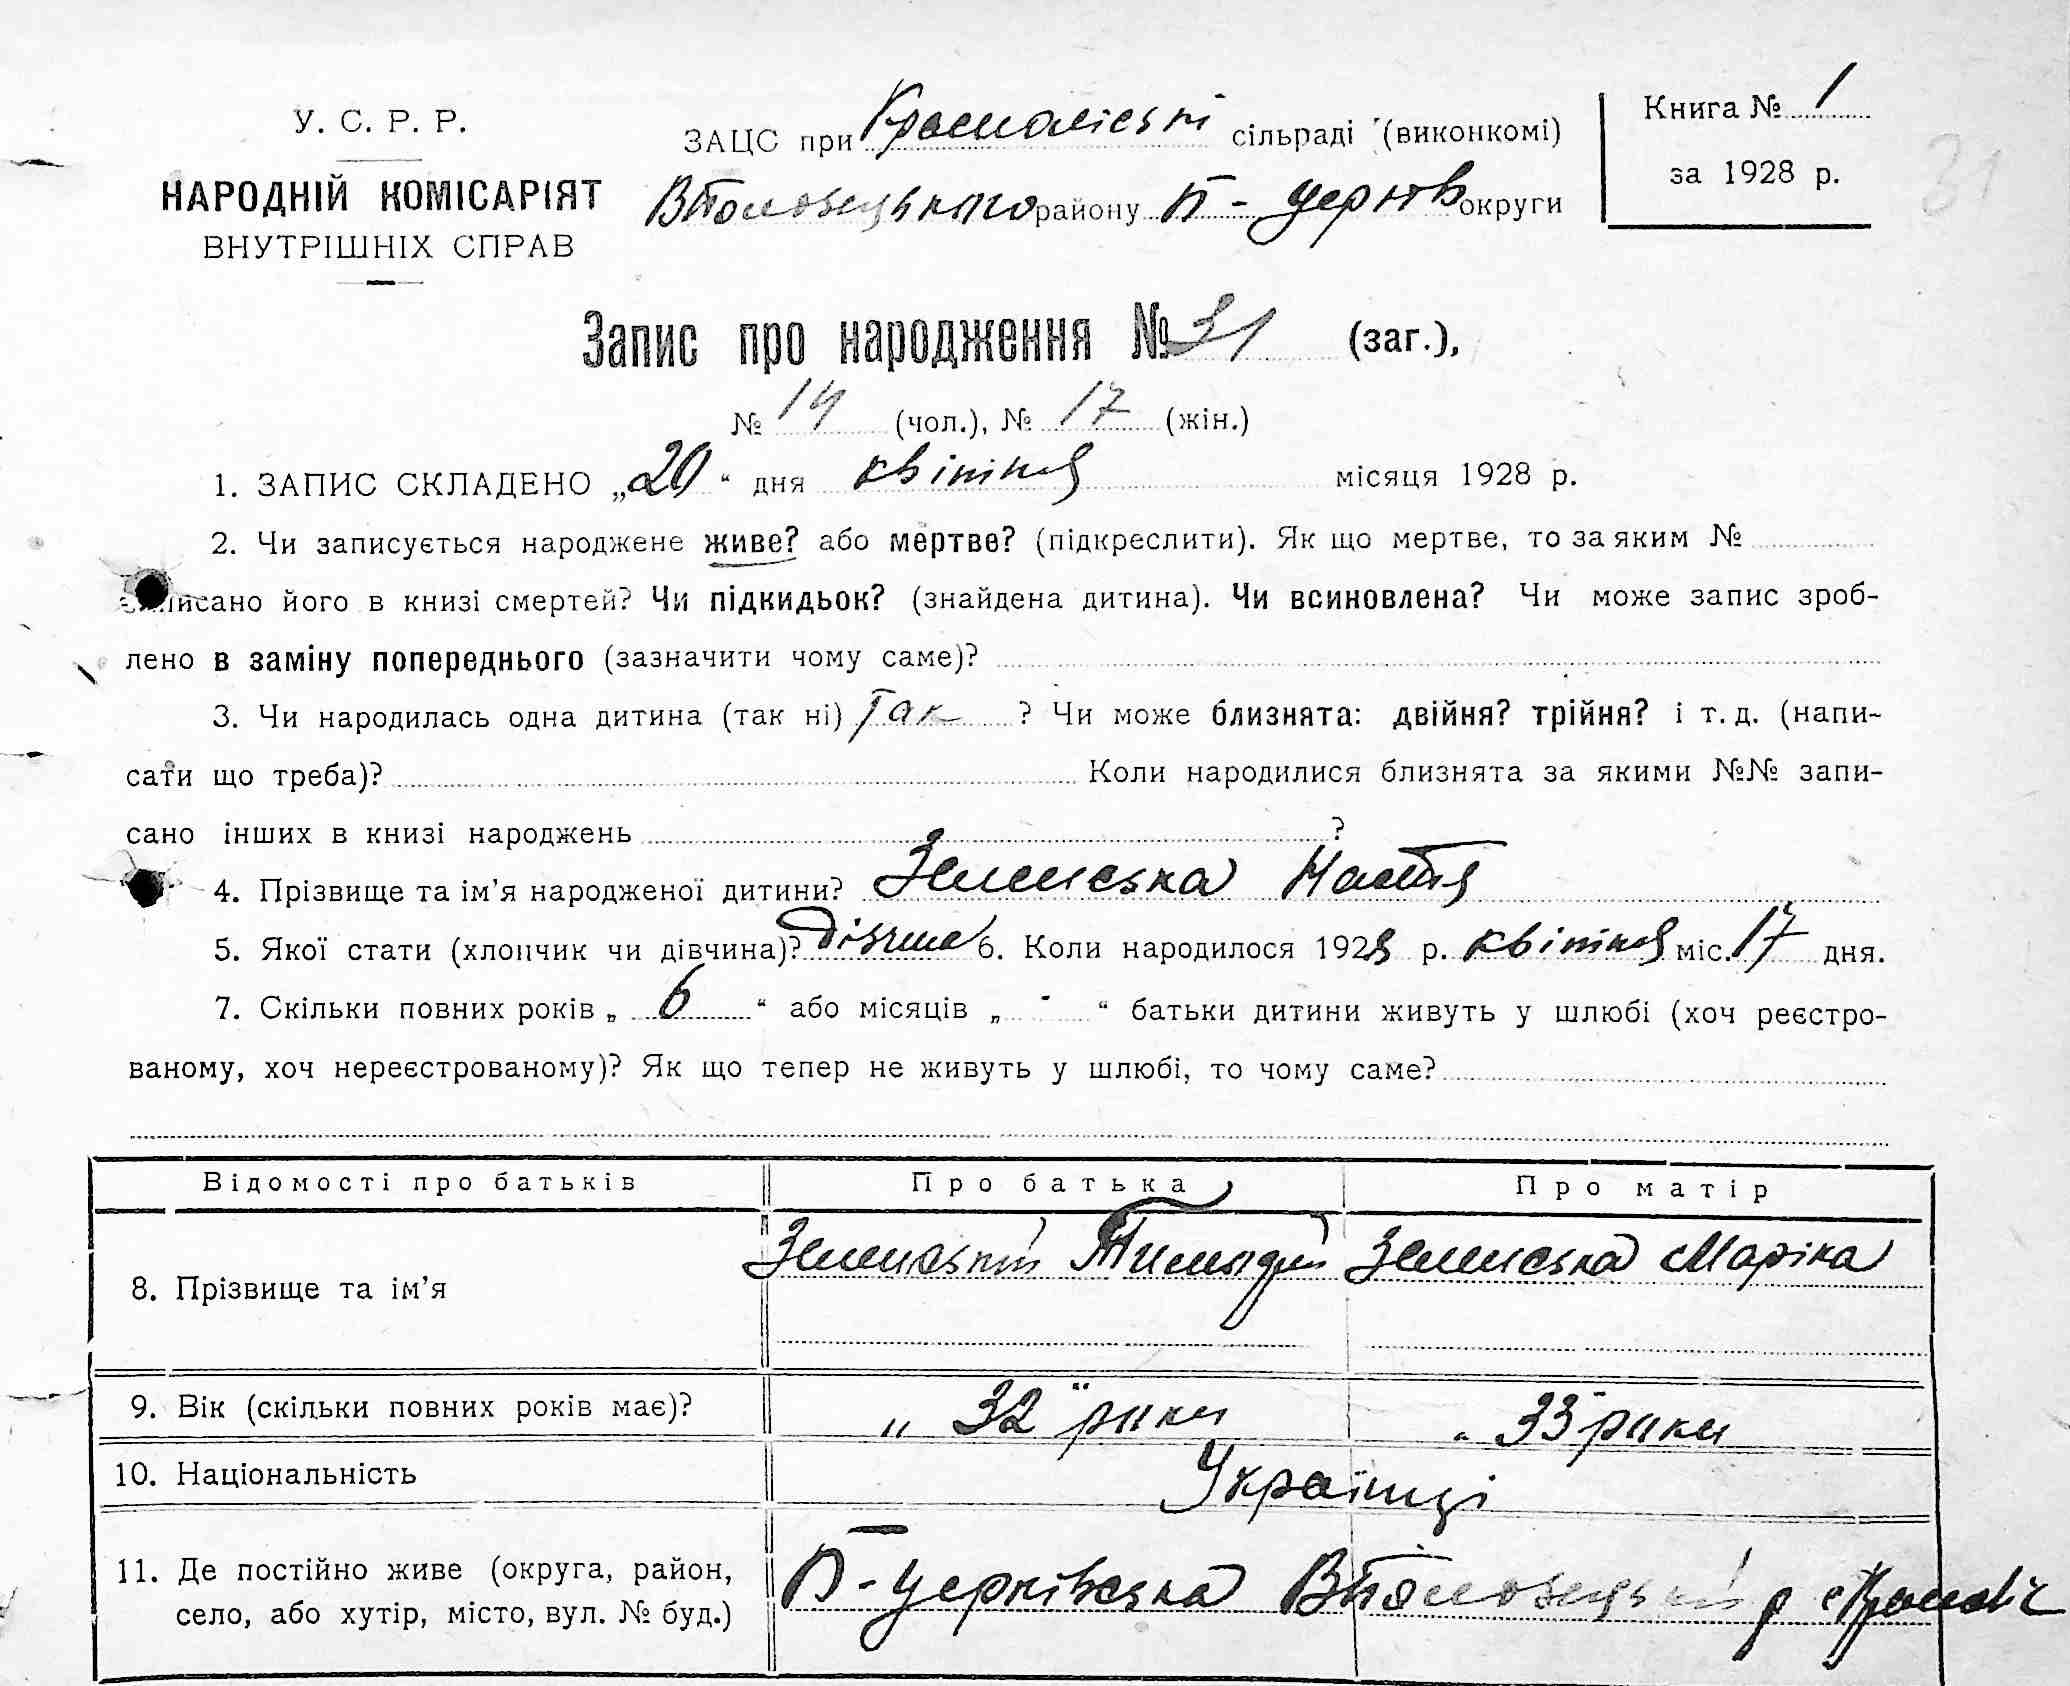 У. С. Р. Р.
НАРОДНІЙ КОМІСАРІЯТ
ВНУТРІШНІХ СПРАВ
ЗАЦС при Красноліській сільраді (виконкомі)
району Б-Церків округи
Книга № 1
за 1928 р.
31
Запис про народження № 31 (заг.),
№ 14 (чол.), № 17 (жін.)
1. ЗАПИС СКЛАДЕНО „20“ дня квітня місяця 1928 р.
2. Чи записується народжене живе? або мертве? (підкреслити). Як що мертве, то за яким №
записано його в книзі смертей? Чи підкидьок? (знайдена дитина). Чи всиновлена? Чи може запис зроб-
лено в заміну попереднього (зазначити чому саме)?
3. Чи народилась одна дитина (так ні) Так ? Чи може близнята: двійня? трійня? і т. д. (напи-
сати що треба)? Коли народилися близнята за якими №№ запи-
сано інших в книзі народжень ?
4. Прізвище та ім’я народженої дитини? Зеленська Настя
5. Якої стати (хлопчик чи дівчина)? Дівчина 6. Коли народилося 1928 р. квітня міс. 17 дня.
7. Скільки повних років „ 6 “ або місяців „ - “ батьки дитини живуть у шлюбі (хоч реєстро-
ваному, хоч нереєстрованому)? Як що тепер не живуть у шлюбі, то чому саме?
Відомості про батьків Про батька Про матір
8. Прізвище та ім’я Зеленський Зеленська Маріка
9. Вік (скільки повних років має)? „ 32 роки „ 33 роки
10. Національність Українці
11. Де постійно живе (округа, район,
село, або хутір, місто, вул. № буд.)
Б-Церківська р